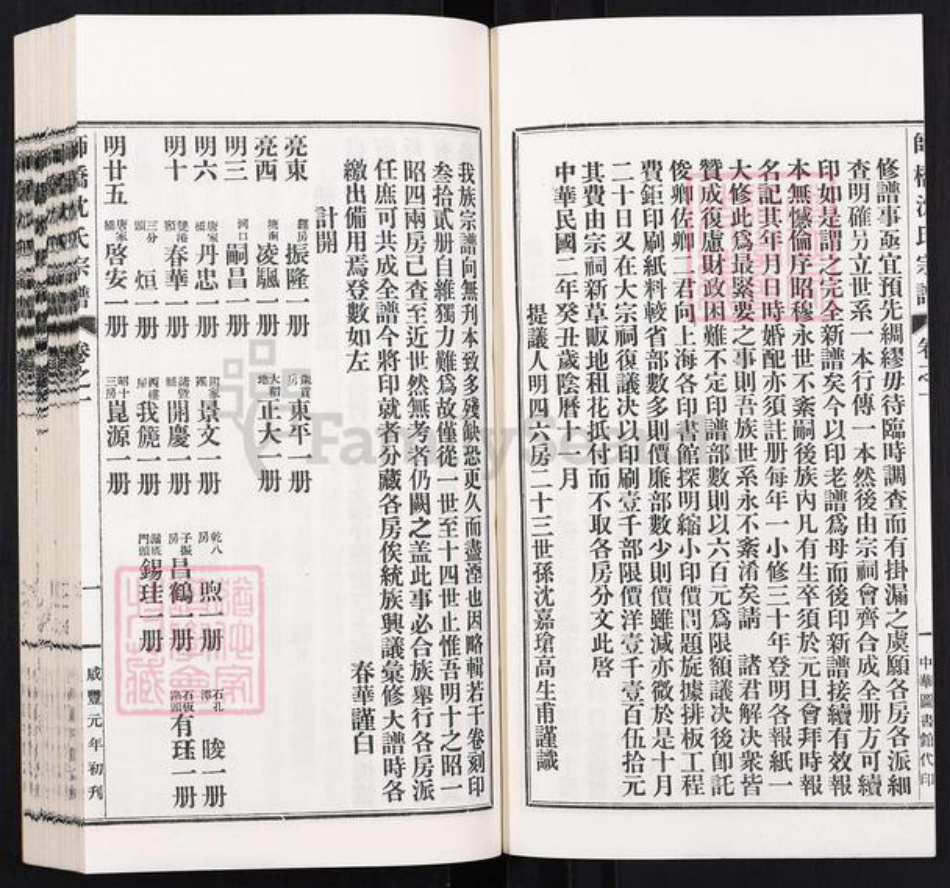 修譜事亟宜預先綢繆毋待臨時調查而有掛漏之虞願各房各派細
查明確另立世系一本行傳一本然後由宗祠會齊合成全册方可續
印如是謂之完全新譜矣今以印老譜爲母而後印新譜接續有效報
本無憾倫序昭穆永世不紊嗣後族內凡有生卒須於元旦會拜時報
名記其年月日時婚配亦須註册每年一小修三十年登明各報紙一
大修此爲最緊要之事則吾族世系永不紊淆矣請 諸君解決衆皆
贊成復慮財政困難不定印譜部數則以六百元爲限額議决後卽託
俊卿佐卿二君向上海各印書館探明縮小印價問題旋據排板工程
費鉅印刷紙料較省部數多則價廉部數少則價雖減亦微於是十月
二十日又在大宗祠復議决以印刷壹千部限價洋壹千壹百伍拾元
其費由宗祠新草畈地租花抵付而不取各房分文此啓
中華民國二年癸丑歲陰曆十一月
提議人明四六房二十三世孫沈嘉瑲高生甫謹識
中華圖書館代印
我族宗譜向無刋本致多殘缺恐更久而盡湮也因略輯若干卷刻印
叁拾貳册自維獨力難爲故僅從一世至十四世止惟吾明十之昭一
昭四兩房已查至近世然無考者仍闕之盖此事必合族舉行各房派
任庶可共成全譜今將印就者分藏各房俟統族興議彙修大譜時各
繳出備用焉登數如左
春華謹白
計開
亮東 振隆一册 東平一册
亮西 凌颿一册 大和地 正大一册
明三 河口 嗣昌一册
明六 唐家橋 丹忠一册 景文一册 乾八房 煦一册 石孔潭 晙一册
明十 春華一册 開慶一册 子振房 昌鶴一册 石板路頭 有珏一册
三分頭 烜一册 我篪一册 門頭 錫珪一册
明廿五 唐家橋 啓安一册 昭十三房 崑源一册
師橋沈氏宗譜 卷之一
一
咸豐元年初刋
FamilySearch